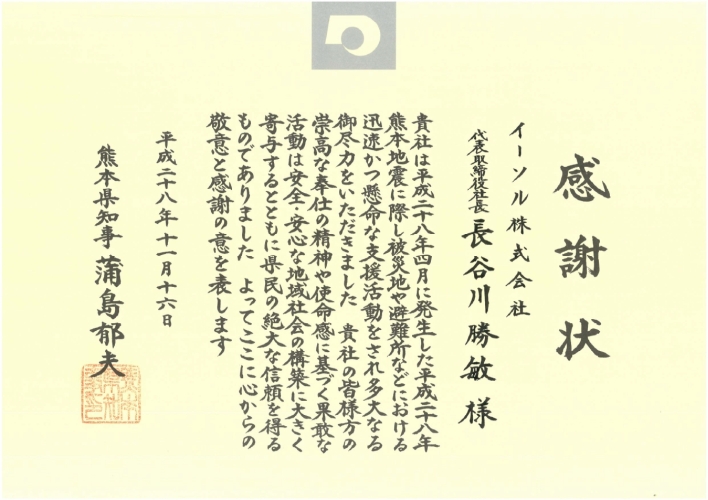 感謝状
イーソル株式会社
代表取締役社長 長谷川勝敏様
貴社は平成二十八年四月に発生した平成二十八年
熊本地震に際し被災地や避難所などにおける
迅速かつ懸命な支援活動をされ多大なる
御尽力をいただきました 貴社の皆様方の
崇高な奉仕の精神や使命感に基づく果敢な
活動は安全・安心な地域社会の構築に大きく
寄与するとともに県民の絶大な信頼を得る
ものでありました よってここに心からの
敬意と感謝の意を表します
平成二十八年十一月十六日
熊本県知事 蒲島郁夫